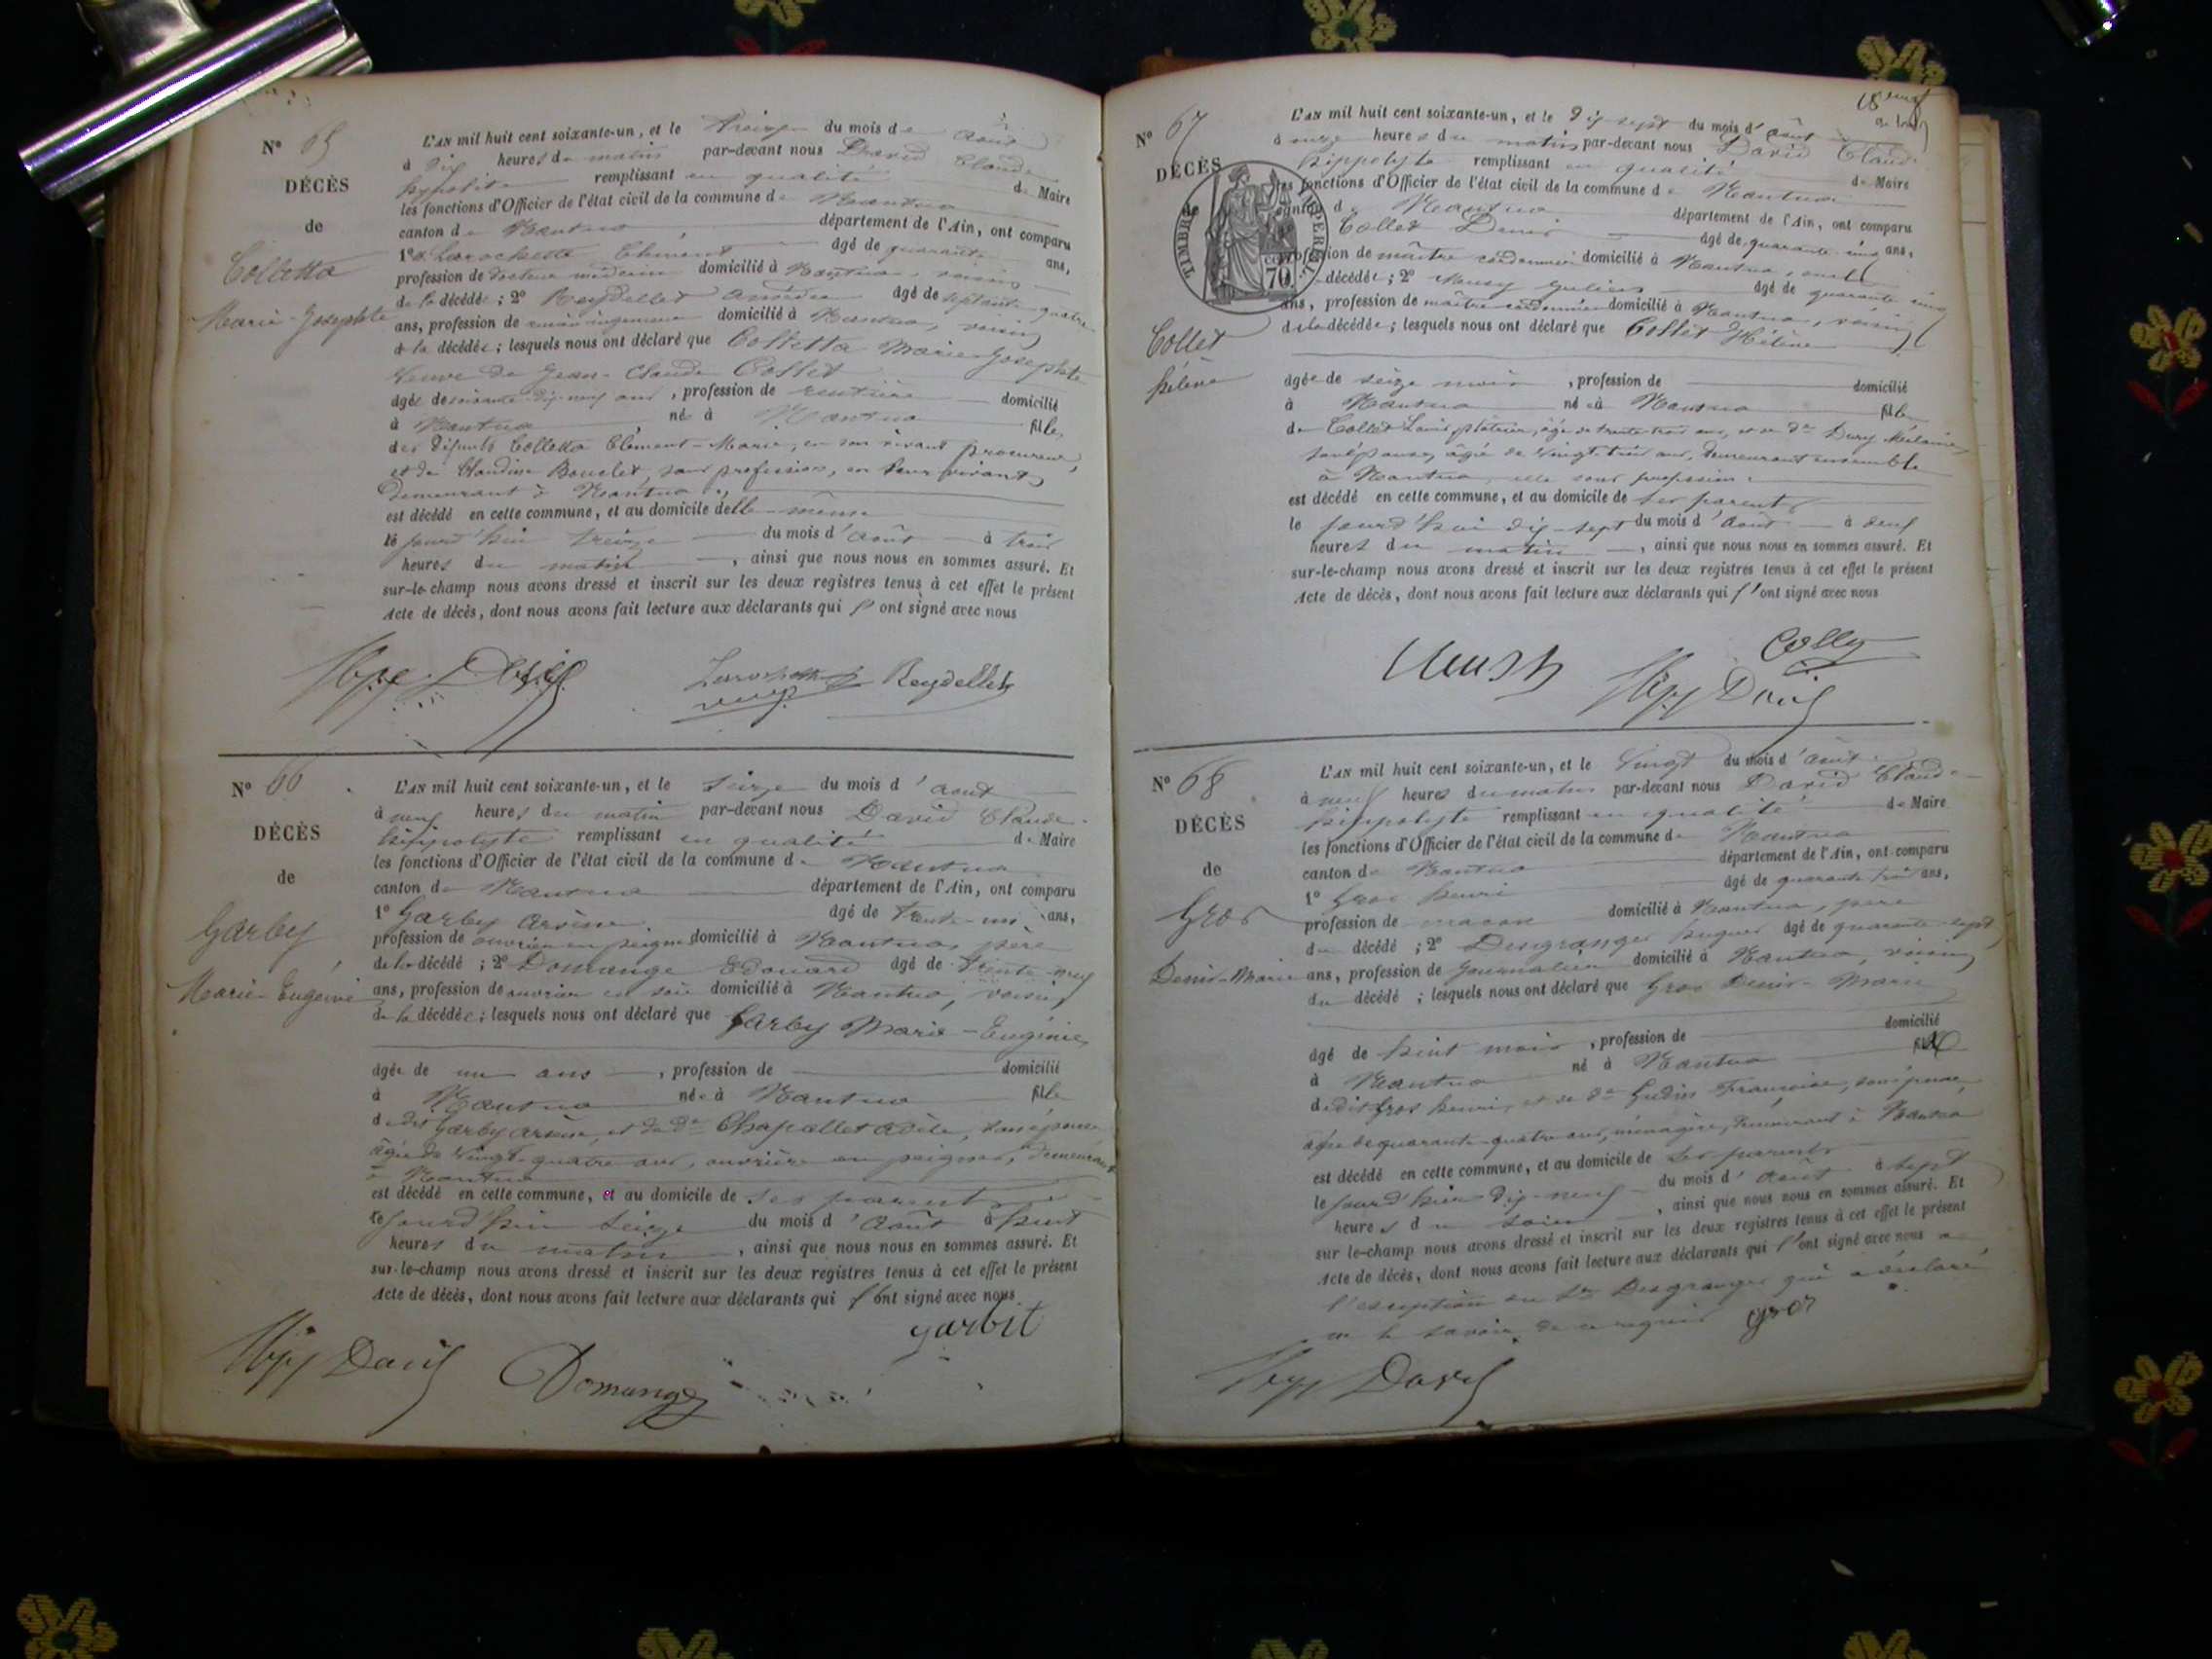 N° 65
DÉCÈS
de
Colletta
Marie-Josephte
L'AN mil huit cent soixante-un, et le treize du mois de août
à dix heures du matin par-devant nous David Claude
hypolite remplissant en qualité de Maire
les fonctions d'Officier de l'état civil de la commune de Nantua
canton de Nantua département de l'Ain, ont comparu
1° Larochette Clément âgé de quarante ans,
profession de docteur médecin domicilié à Nantua, voisin
de la décédée ; 2° Reydellet Amédée âgé de septante quatre
ans, profession de domicilié à Nantua, voisin
de la décédée ; lesquels nous ont déclaré que Colletta Marie-Josephte
veuve de Jean-Claude Collet
âgée de soixante-dix-neuf ans, profession de rentière domicilié
à Nantua née à Nantua fille
des défunts Colletta Clément-Marie, en son vivant procureur,
et de Claudine Bouclet, sans profession, en leur vivant
demeurant à Nantua
est décédé en cette commune, et au domicile d'elle-même
le jourd'hui treize du mois d'août à trois
heures du matin, ainsi que nous nous en sommes assuré. Et
sur-le-champ nous avons dressé et inscrit sur les deux registres tenus à cet effet le présent
Acte de décès, dont nous avons fait lecture aux déclarants qui l'ont signé avec nous
Hype David Larochette Reydellet
N° 66
DÉCÈS
de
Garby
Marie-Eugénie
L'AN mil huit cent soixante-un, et le seize du mois d'août
à neuf heures du matin par-devant nous David Claude
hippolyte remplissant en qualité de Maire
les fonctions d'Officier de l'état civil de la commune de Nantua
canton de Nantua département de l'Ain, ont comparu
1° Garby Arsène âgé de trente-un ans,
profession de ouvrier en peignes domicilié à Nantua, père
de la décédé ; 2° Domange Edouard âgé de trente-neuf
ans, profession de ouvrier en soie domicilié à Nantua, voisin
de la décédée ; lesquels nous ont déclaré que Garby Marie-Eugénie
âgée de un ans, profession de domicilié
à Nantua née à Nantua fille
de dit Garby Arsène, et de de Chapallet Adèle, son épouse
âgée de vingt-quatre ans, ouvrière en peignes, demeurant
à Nantua
est décédé en cette commune, et au domicile de ses parents
le jourd'hui seize du mois d'août à huit
heures du matin, ainsi que nous nous en sommes assuré. Et
sur-le-champ nous avons dressé et inscrit sur les deux registres tenus à cet effet le présent
Acte de décès, dont nous avons fait lecture aux déclarants qui l'ont signé avec nous
garbit
Hypp David Domange
N° 67
DÉCÈS
de
TIMBRE IMPERIAL
70
Collet
hélène
L'AN mil huit cent soixante-un, et le dix sept du mois d'août
à onze heures du matin par-devant nous David Claude
hippolyte remplissant en qualité de Maire
les fonctions d'Officier de l'état civil de la commune de Nantua
canton de Nantua département de l'Ain, ont comparu
Collet Denis âgé de quarante-cinq ans,
profession de maître cordonnier domicilié à Nantua, oncle
décédée ; 2° âgé de quarante cinq
ans, profession de maître cordonnier domicilié à Nantua, voisin
de la décédée ; lesquels nous ont déclaré que Collet Hélène
âgée de seize mois, profession de domicilié
à Nantua née à Nantua fille
de Collet Louis, plâtrier, âgé de trente-trois ans, et de de Dury Mélanie,
son épouse, âgée de vingt-trois ans, demeurant ensemble
à Nantua, elle sans profession
est décédé en cette commune, et au domicile de ses parents
le jourd'hui dix-sept du mois d'août à neuf
heures du matin, ainsi que nous nous en sommes assuré. Et
sur-le-champ nous avons dressé et inscrit sur les deux registres tenus à cet effet le présent
Acte de décès, dont nous avons fait lecture aux déclarants qui l'ont signé avec nous
Collet
Hypp David
N° 68
DÉCÈS
de
Gros
Denis-Marie
L'AN mil huit cent soixante-un, et le vingt du mois d'août
à neuf heures du matin par-devant nous David Claude
hippolyte remplissant en qualité de Maire
les fonctions d'Officier de l'état civil de la commune de Nantua
canton de Nantua département de l'Ain, ont comparu
1° Gros henri âgé de quarante trois ans,
profession de maçon domicilié à Nantua, père
du décédé ; 2° Desgranges hugues âgé de quarante-sept
ans, profession de journalier domicilié à Nantua, voisin
du décédé ; lesquels nous ont déclaré que Gros Denis-Marie
âgé de huit mois, profession de domicilié
à Nantua né à Nantua fils
de dit Gros henri, et de de Gudin Françoise, son épouse,
âgée de quarante-quatre ans, ménagère, demeurant à Nantua
est décédé en cette commune, et au domicile de ses parents
le jourd'hier dix-neuf du mois d'août à sept
heures du soir, ainsi que nous nous en sommes assuré. Et
sur le-champ nous avons dressé et inscrit sur les deux registres tenus à cet effet le présent
Acte de décès, dont nous avons fait lecture aux déclarants qui l'ont signé avec nous à
l'exception du Sr Desgranges qui a déclaré
ne le savoir de ce requis gros
Hypp David